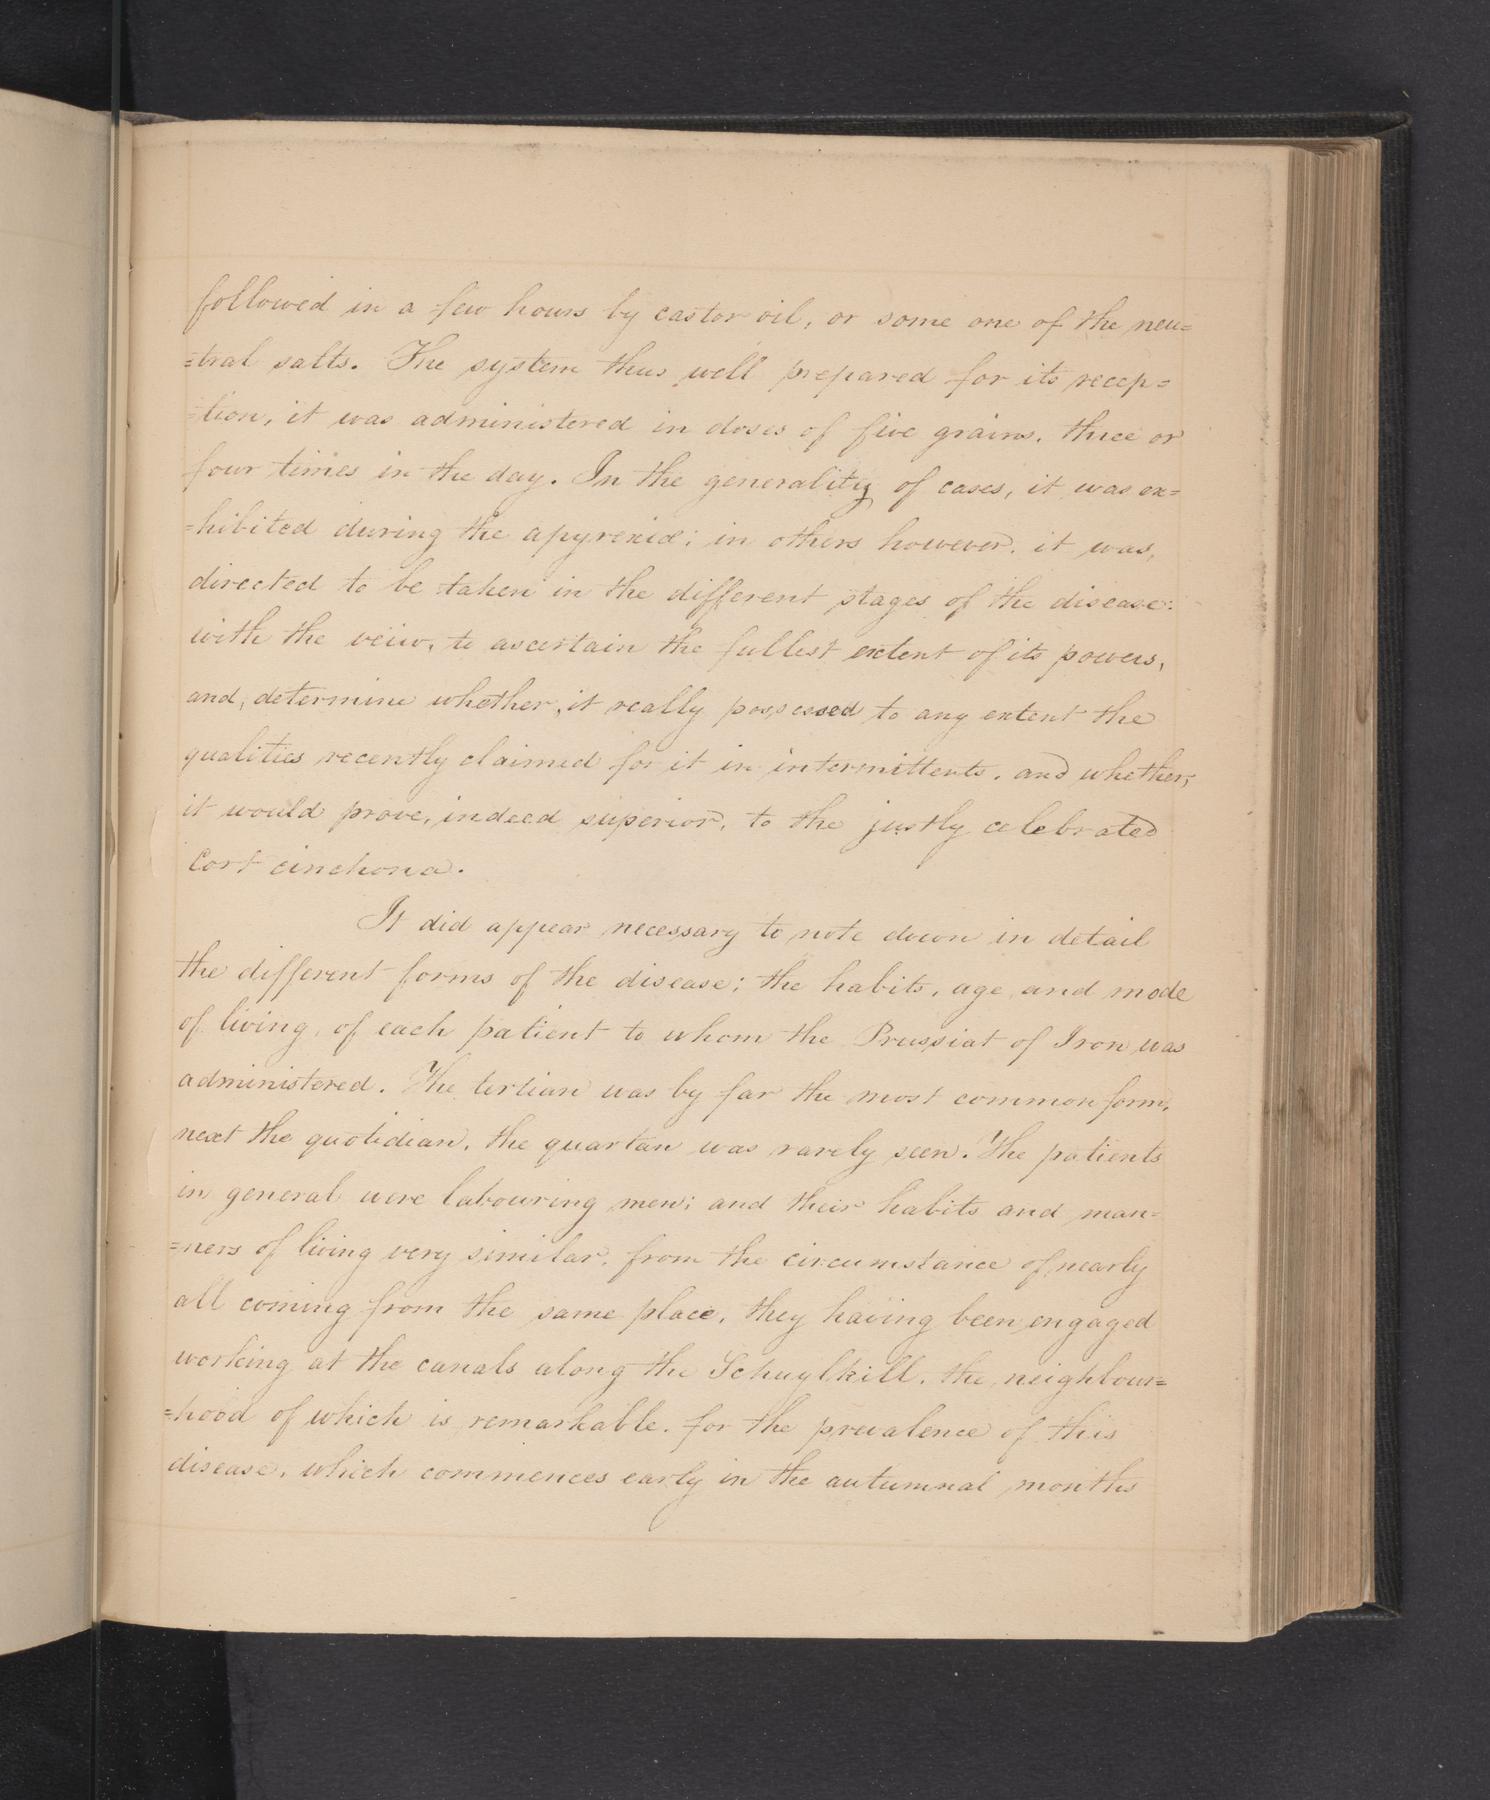 followed in a few hours by castor oil, or some one of the neu=
=tral salts. The system thus well prepared for its recep=
=tion, it was administered in doses of five grains, three or
four times in the day. In the generality of cases, it was ex=
=hibited during the apyrexiæ; in others however, it was,
directed to be taken in the different stages of the disease:
with the veiw, to ascertain the fullest extent of its powers,
and, determine whether, it really possessed to any extent the
qualities recently claimed for it in intermittents, and whether,
it would prove, indeed superior, to the justly celebrated
Cort cinchona.
It did appear necessary to note down in detail
the different forms of the disease; the habits, age, and mode
of living, of each patient to whom the Prussiat of Iron was
administered. The tertian was by far the most common form,
next the quotidian, the quartan was rarely seen. The patients
in general were labouring men; and their habits and man=
=ners of living very similar, from the circumstance of nearly
all coming from the same place, they having been engaged
working at the canals along the Schuylkill, the neighbour=
=hood of which is remarkable, for the prevalence of this
disease, which commences early in the autumnal months